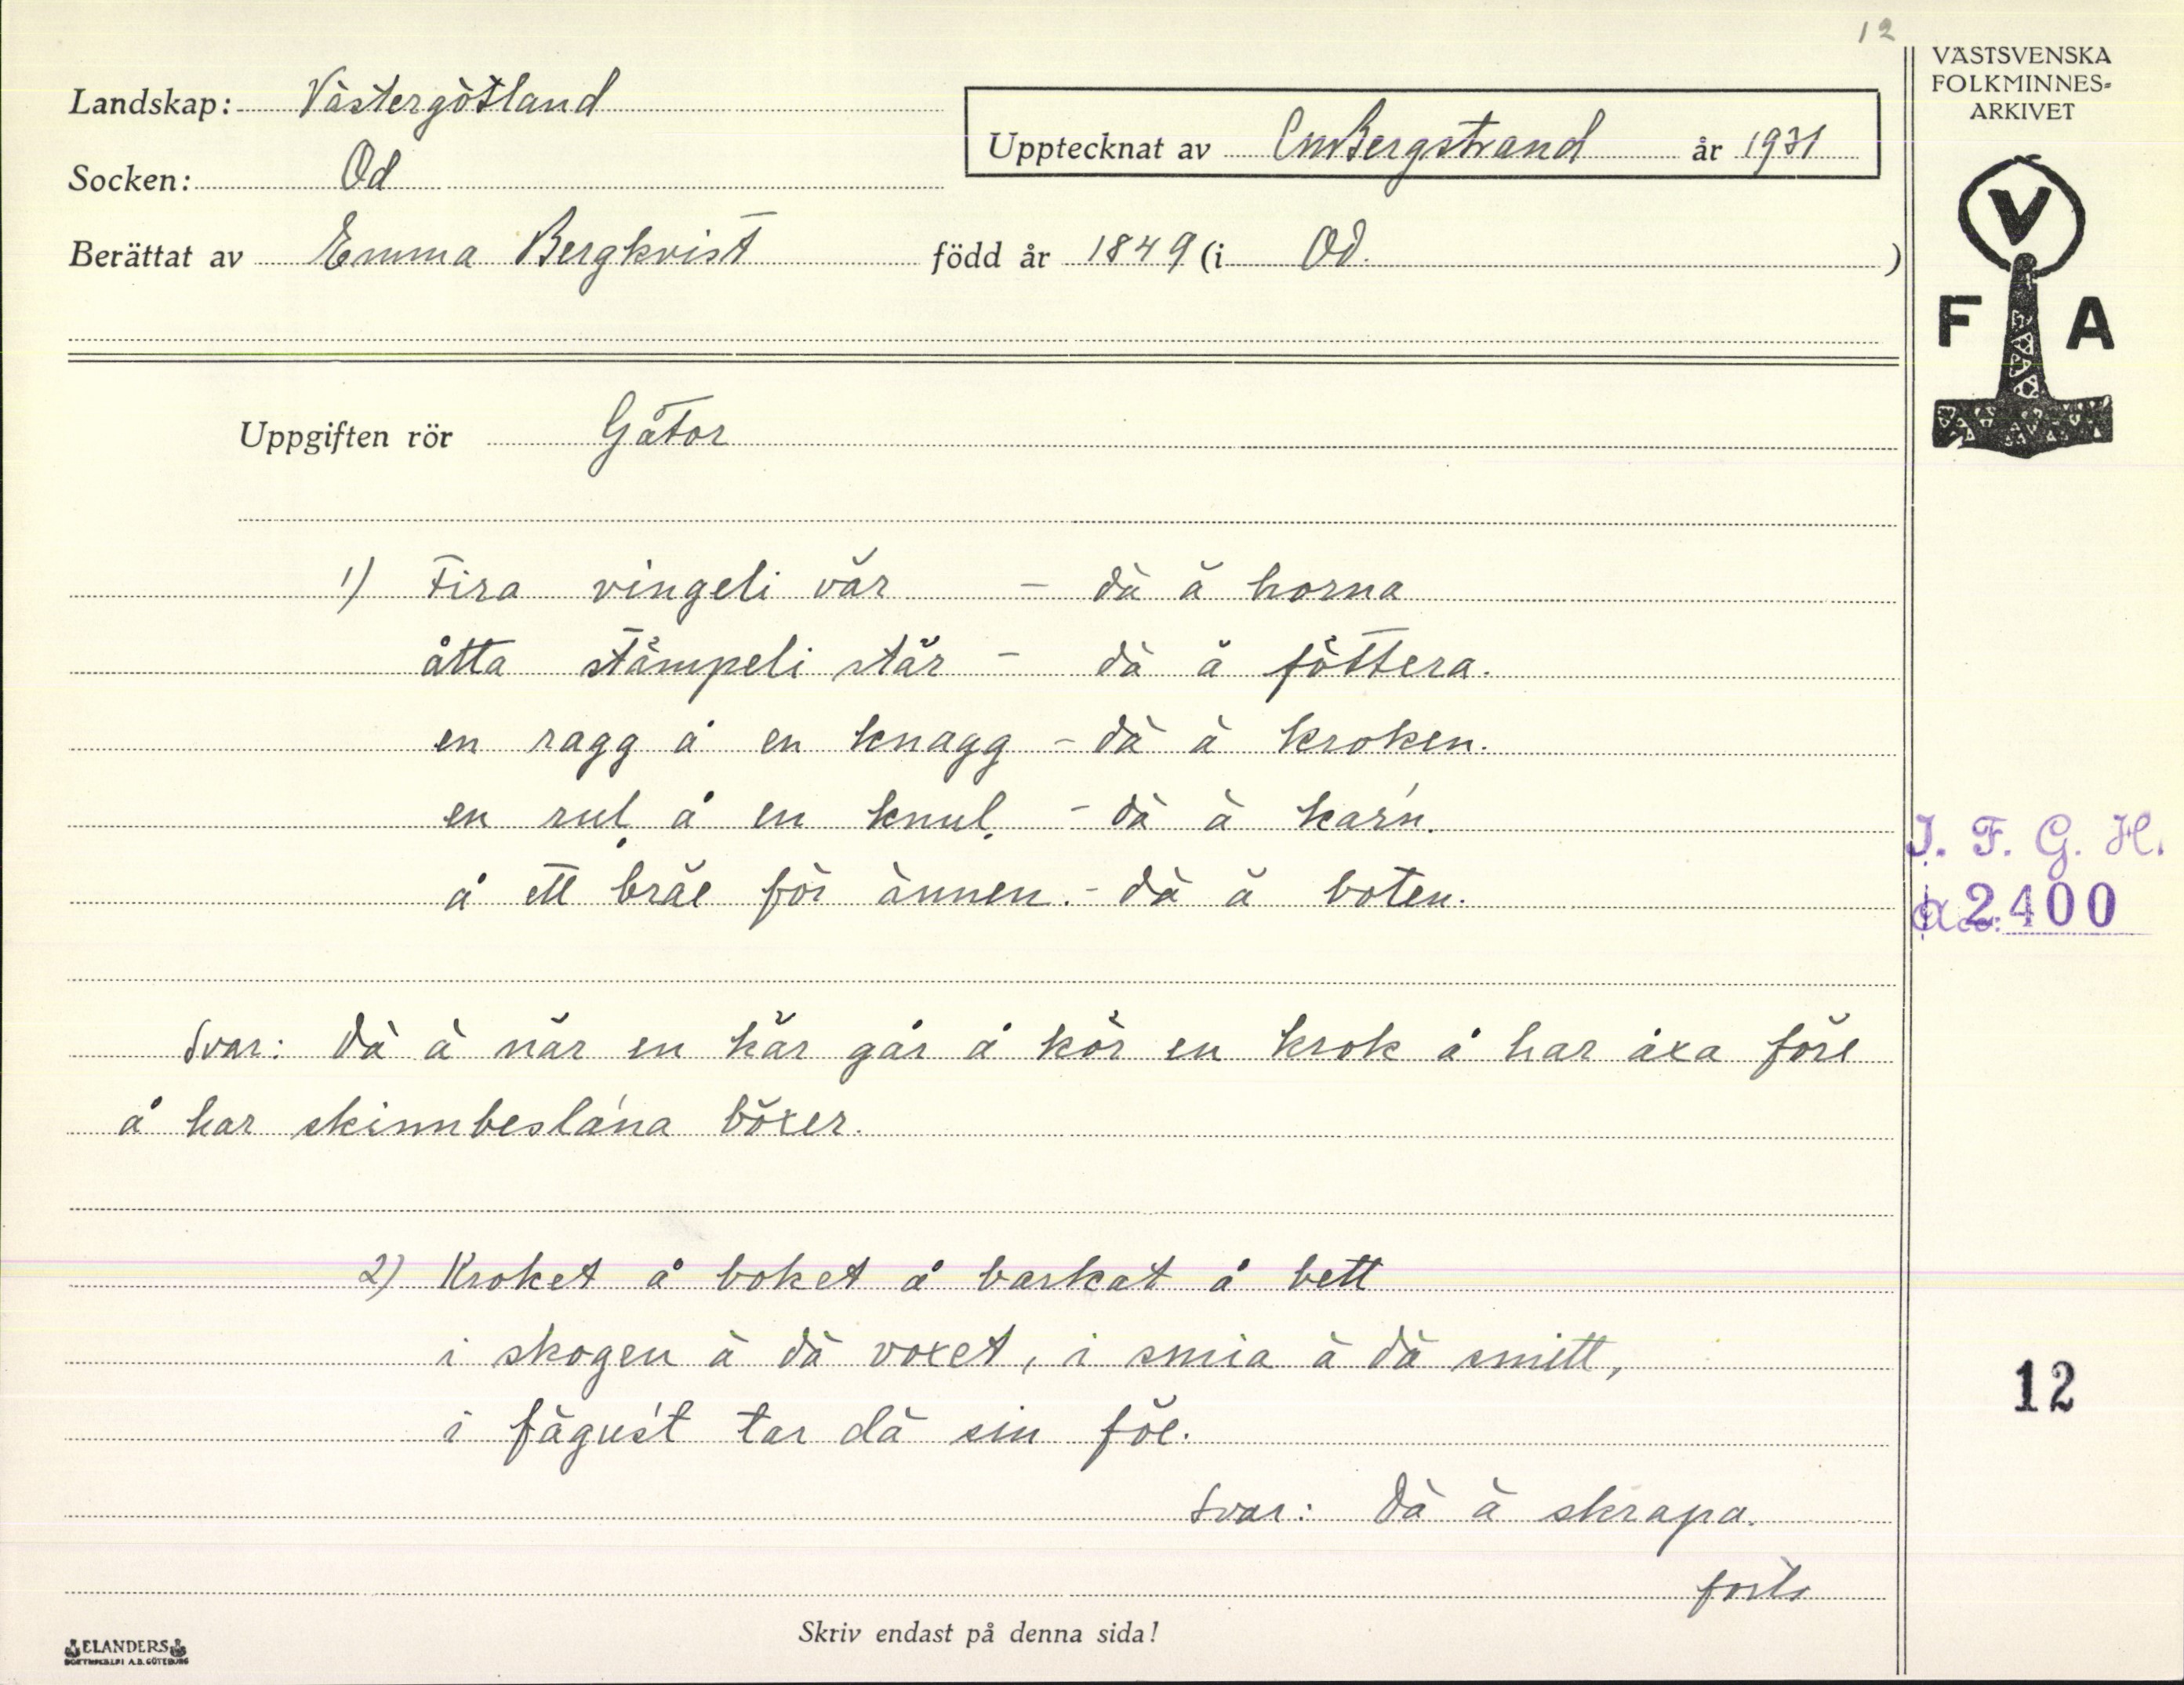 12
VÄSTSVENSKA
FOLKMINNES-
ARKIVET
Landskap: Västergötland
Upptecknat av CMBergstrand år 1931
Socken: Od
Berättat av Emma Bergkvist född år 1849 (i Od. )
V
F A
Uppgiften rör Gåtor
1) Fira vingeli vär – dä ä horna
åtta stämpeli stär – dä ä föttera.
en ragg å en knagg – dä ä kroken.
en rul å en knul – dä ä karn.
å ett bräe för ännen. – dä ä boten.
I. F. G. H.
Acc: 2400
Svar: Dä ä när en kär går å kör en krok å har åxa före
å har skinnbeslána böxer.
2) Kroket å boket å barkat å bett
i skogen ä dä voxet, i smia ä dä smitt,
i fägust tar dä sin föe.
12
Svar: Dä ä skrapa.
forts
Skriv endast på denna sida!
ELANDERS
BOKTRYCKERI A.B. GÖTEBORG